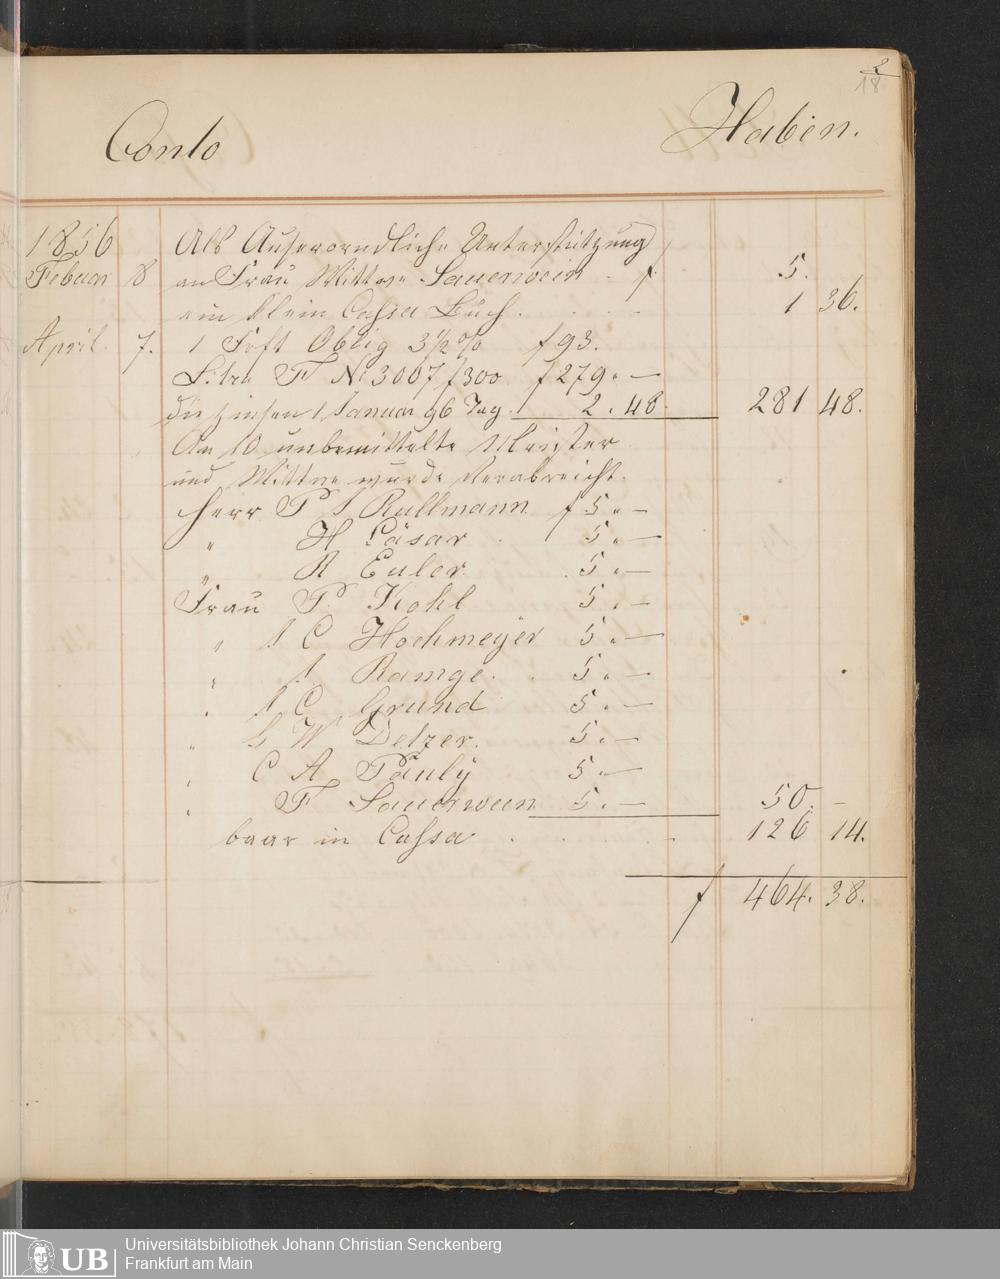 2
18
Conto Haben.
1856 Als Auserorndliche Unterstützung
Febuar 8 an Frau Wittwe Sauerwein . f 5.
ein klein Cassa Buch . . . . 1 36.
April. 7. 1 Frft Oblig 3 1/2 % f 93.
Litra F No 3007 f 300 f 279. —
die Zinsen 1 Januar 96 Tag. 2. 48. 281 48.
An 10 unbemittelte Meister
und Wittwe wurde Verabreicht.
Herr P J Rullmann f 5. —
" H Cäsar . 5. —
" R Euler. 5. —
Frau P. Kohl 5. —
" J C Hochmeyer 5. —
" J Ramge. 5. —
" J C Grund 5. —
" G W Delzer. 5. —
" C A Pauly 5. —
" F Sauerwein 5. — 50. —
baar in Cassa . . . . . 126 14.
f 464. 38.
Universitätsbibliothek Johann Christian Senckenberg
Frankfurt am Main
UB